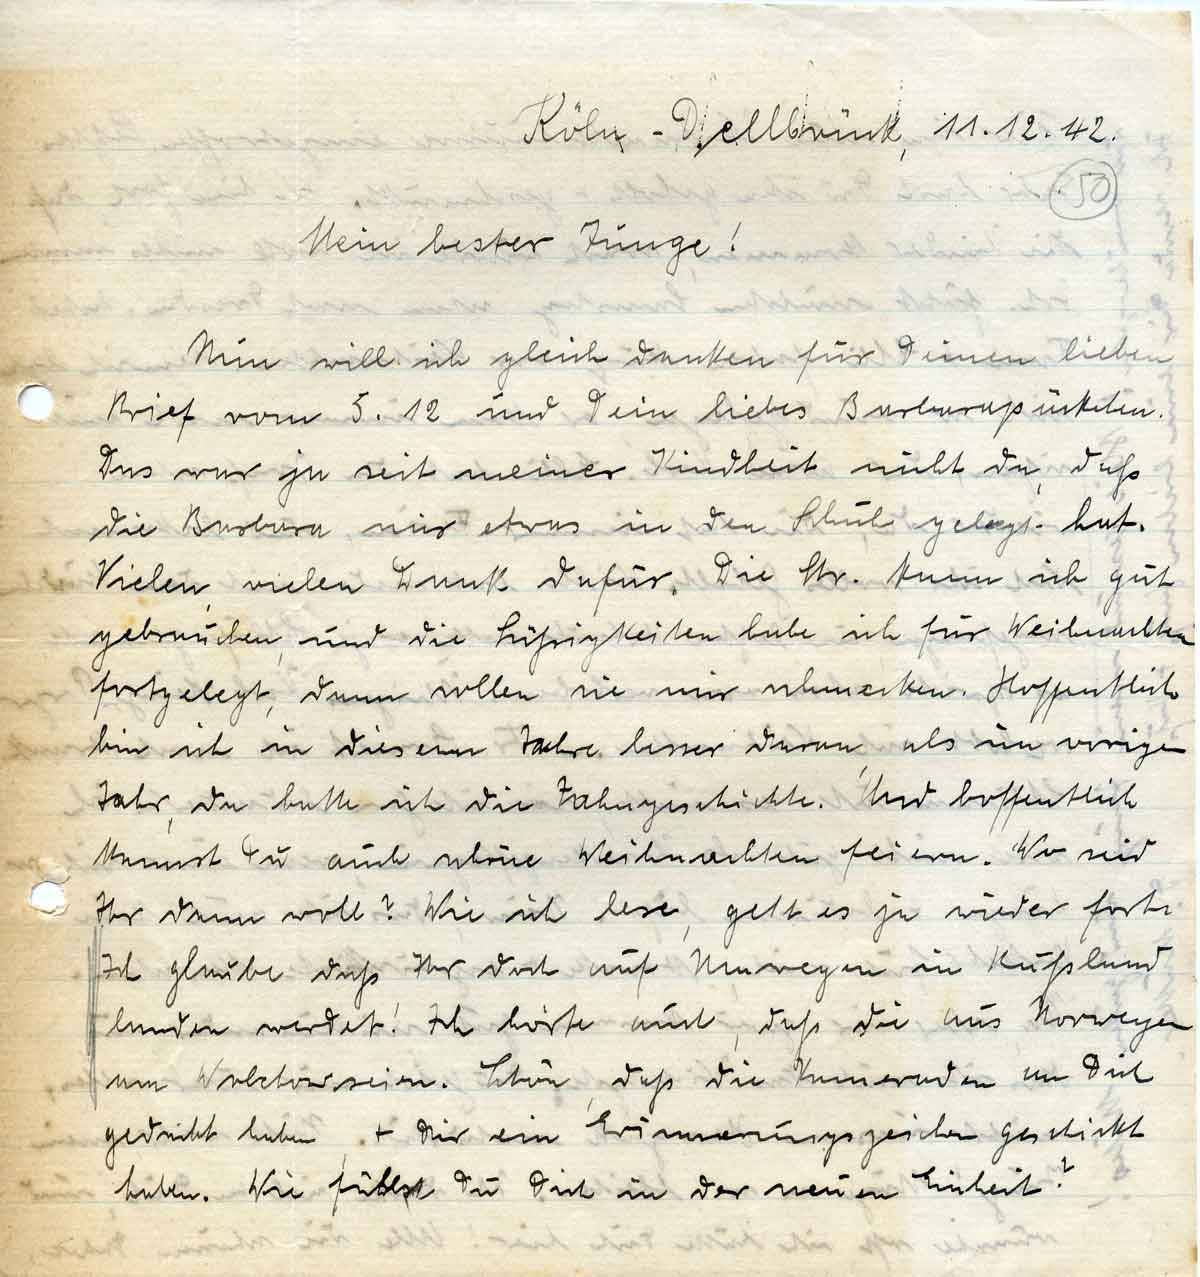 Köln - Dellbrück, 11.12.42.
50
Mein bester Junge!
Nun will ich gleich danken für Deinen lieben
Brief vom 5.12 und Dein liebes Barbarapäckchen.
Das war ja seit meiner Kindheit nicht da, daß
die Barbara mir etwas in den Schuh gelegt hat.
Vielen, vielen Dank dafür. Die Str. kann ich gut
gebrauchen, und die Süßigkeiten habe ich für Weihnachten
fortgelegt, dann sollen sie mir schmecken. Hoffentlich
bin ich in diesem Jahre besser daran, als im vorigen
Jahr, da hatte ich die Zahngeschichte. Und hoffentlich
kannst Du auch schöne Weihnachten feiern. Wo seid
Ihr dann wohl? Wie ich lese, geht es ja wieder fort.
Ich glaube daß Ihr doch auf in Rußland
landen werdet! Ich hörte auch, daß die aus Norwegen
am seien. Schön, daß die Kameraden an Dich
gedacht haben + Dir ein Erinnerungszeichen geschickt
haben. Wie fühlst Du Dich in der neuen Einheit?